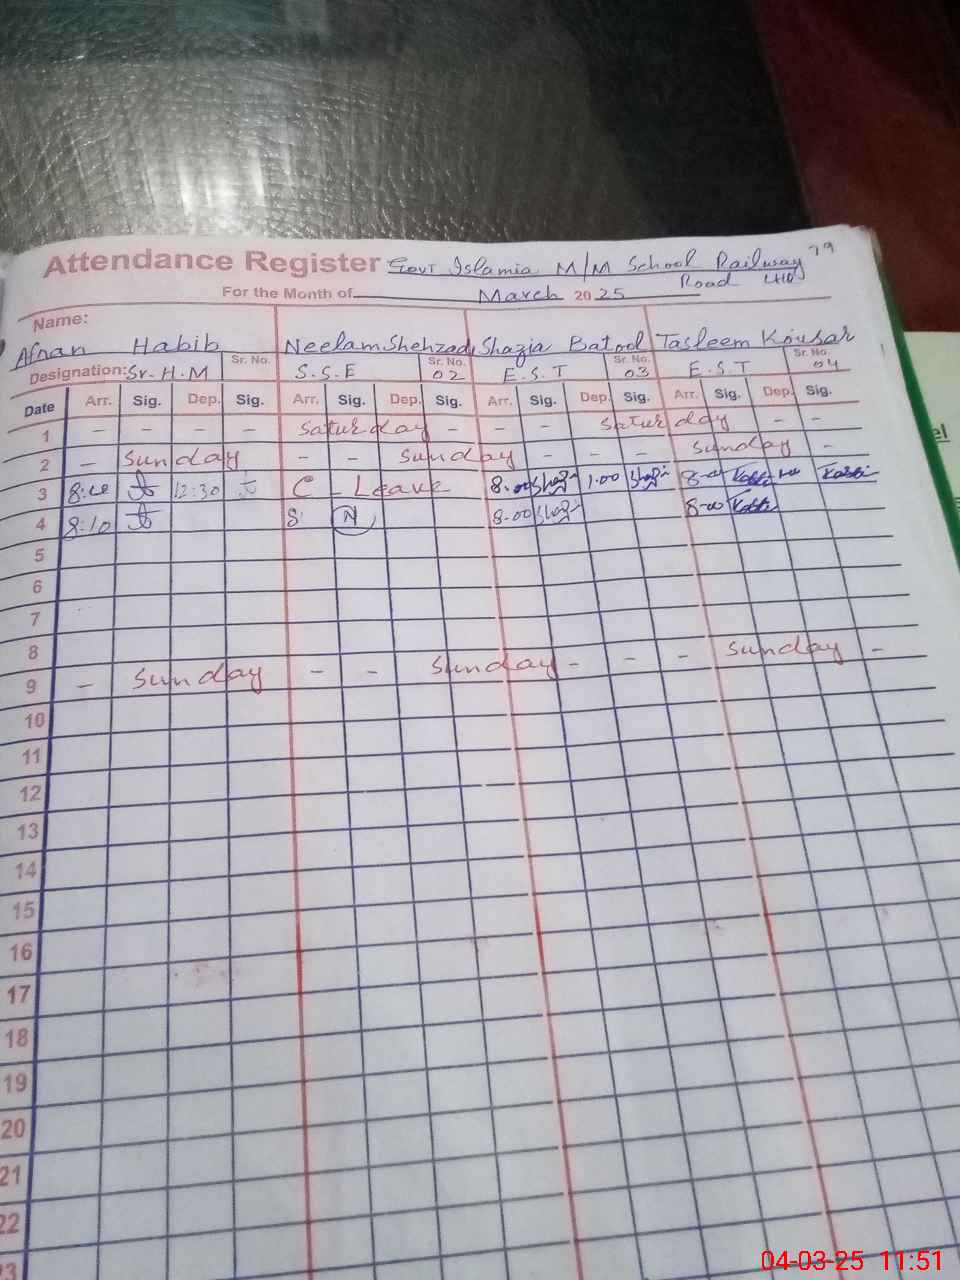 Attendance Register Govt Islamia M/M School Railway 79
Road LHR
For the Month of March 2025
Name:
Afnan Habib Neelam Shehzadi Shazia Batool Tasleem Kousar
Designation: Sr. H. M Sr. No. S. S. E Sr. No. 02 E. S. T Sr. No. 03 E. S. T Sr. No. 04
Date Arr. Sig. Dep. Sig. Arr. Sig. Dep. Sig. Arr. Sig. Dep. Sig. Arr. Sig. Dep. Sig.
1 - - - - Saturday - - - Saturday - -
2 - Sunday - - Sunday - - - Sunday -
3 12:30 C - Leave 8.00 Shazi 1.00 Shazi
4 8:10 8 N 8.00 Shazi 8-00
5
6
7
8
9 - Sunday - - Sunday - - - Sunday -
10
11
12
13
14
15
16
17
18
19
20
21
22
23
el
04-03-25 11:51